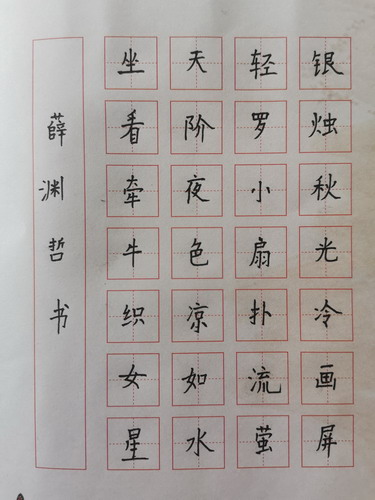 银烛秋光冷画屏
轻罗小扇扑流萤
天阶夜色凉如水
坐看牵牛织女星
薛渊哲书